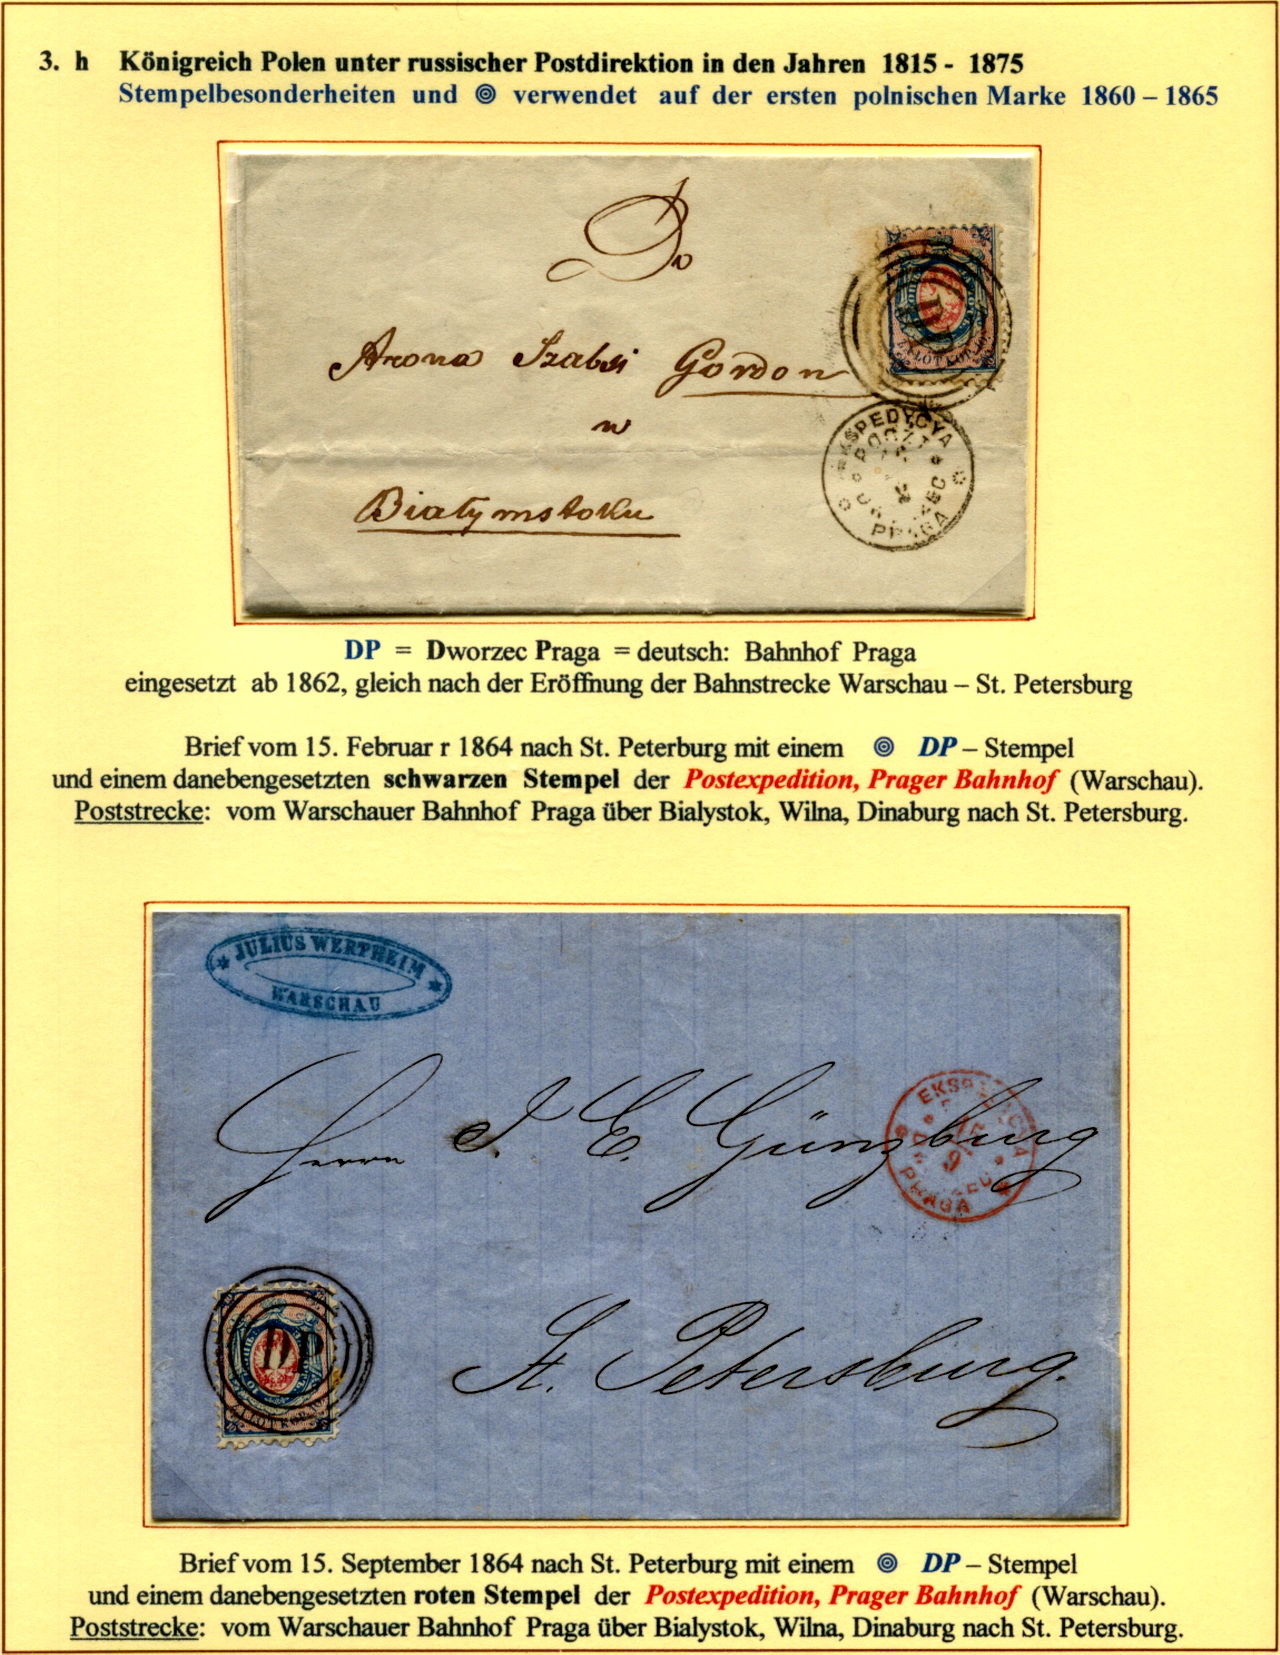 3. h Königreich Polen unter russischer Postdirektion in den Jahren 1815 - 1875
Stempelbesonderheiten und verwendet auf der ersten polnischen Marke 1860 – 1865
Do
Arona Szabsi Gordon
w
Białymstoku
EKSPEDYCYA
POCZT
DWORZEC
PRAGA
DP = Dworzec Praga = deutsch: Bahnhof Praga
eingesetzt ab 1862, gleich nach der Eröffnung der Bahnstrecke Warschau – St. Petersburg
Brief vom 15. Februar r 1864 nach St. Peterburg mit einem DP – Stempel
und einem danebengesetzten schwarzen Stempel der Postexpedition, Prager Bahnhof (Warschau).
Poststrecke: vom Warschauer Bahnhof Praga über Bialystok, Wilna, Dinaburg nach St. Petersburg.
JULIUS WERTHEIM
WARSCHAU
Herrn J. E. Günzburg
EKSPEDYCYA
15
9
PRAGA
DP
St. Petersburg.
Brief vom 15. September 1864 nach St. Peterburg mit einem DP – Stempel
und einem danebengesetzten roten Stempel der Postexpedition, Prager Bahnhof (Warschau).
Poststrecke: vom Warschauer Bahnhof Praga über Bialystok, Wilna, Dinaburg nach St. Petersburg.